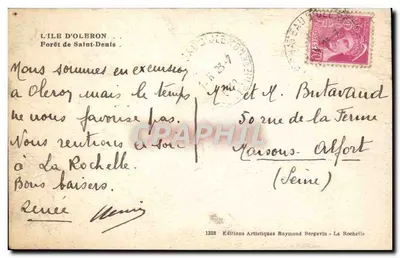 L'ILE D'OLERON
Forêt de Saint-Denis
Nous sommes en excursion
a Oleron mais le temps
ne nous favorise pas.
Nous rentrons ce soir
à La Rochelle.
Bons baisers.
Renée Henri
Mme et M. Butavand
50 rue de la Ferme
Maisons-Alfort
(Seine)
1369 Editions Artistiques Raymond Bergevin - La Rochelle